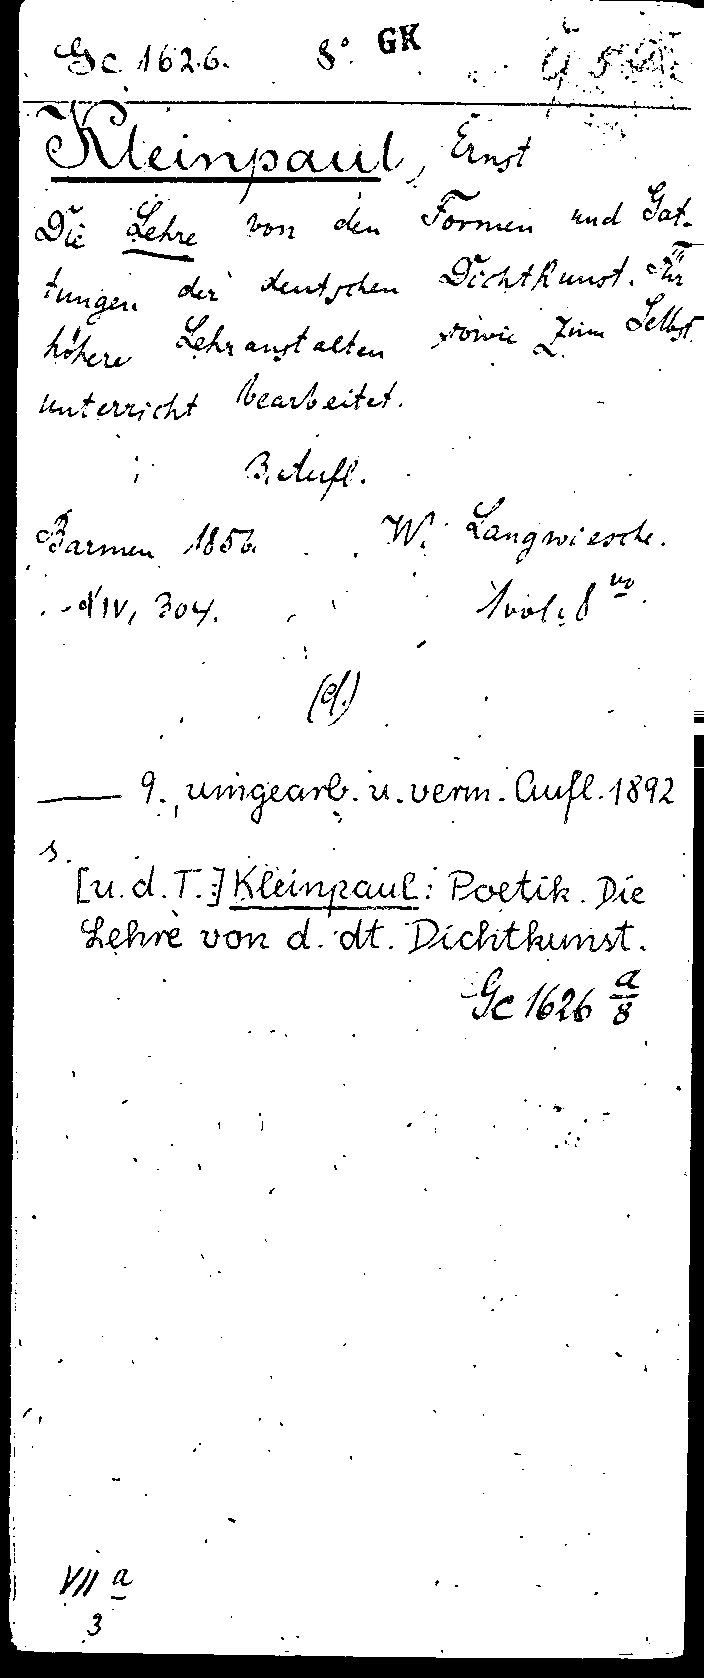 Gc 1626. 8° GK
Kleinpaul, Ernst
Die Lehre von den Formen und Gat-
tungen der deutschen Dichtkunst. Für
höhere Lehranstalten sowie zum Selbst
unterricht bearbeitet.
3. Aufl.
Barmen 1856. W. Langwiesche.
IV, 304. 1 vol. 8vo.
(d.)
— 9., umgearb. u. verm. Aufl. 1892
s.
[u. d. T.:] Kleinpaul: Poetik. Die
Lehre von d. dt. Dichtkunst.
Gc 1626 a/8
VII a
3